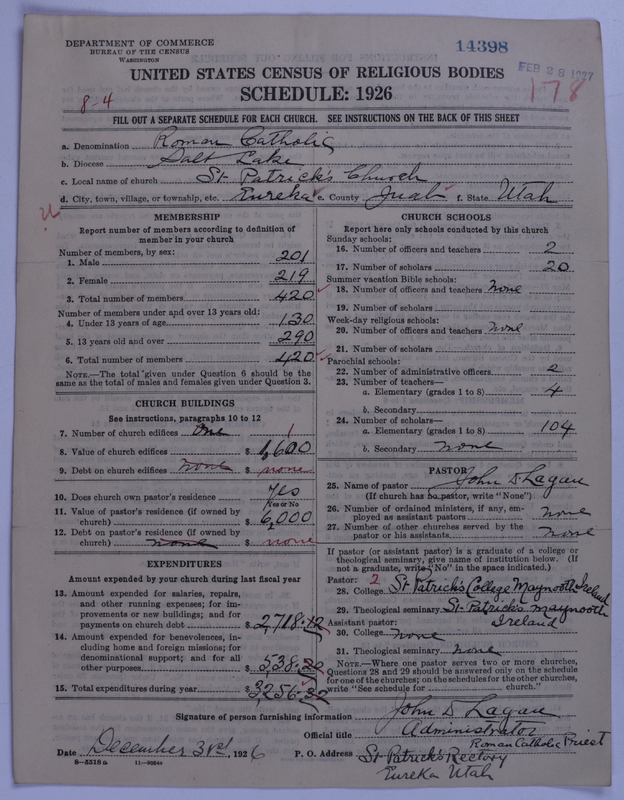 DEPARTMENT OF COMMERCE
BUREAU OF THE CENSUS
WASHINGTON
14398
FEB 28 1927
178
8-4
UNITED STATES CENSUS OF RELIGIOUS BODIES
SCHEDULE: 1926
FILL OUT A SEPARATE SCHEDULE FOR EACH CHURCH. SEE INSTRUCTIONS ON THE BACK OF THIS SHEET
a. Denomination Roman Catholic
b. Diocese Salt Lake
c. Local name of church St. Patrick's Church
d. City, town, village, or township, etc. Eureka e. County Juab f. State Utah
MEMBERSHIP
Report number of members according to definition of
member in your church
Number of members, by sex:
1. Male 201
2. Female 219
3. Total number of members 420
Number of members under and over 13 years old:
4. Under 13 years of age 130
5. 13 years old and over 290
6. Total number of members 420
NOTE.—The total given under Question 6 should be
same as the total of males and females given under Question 3.
CHURCH BUILDINGS
See instructions, paragraphs 10 to 12
7. Number of church edifices One 1
8. Value of church edifices $ 1,600
9. Debt on church edifices none $ none
10. Does church own pastor's residence Yes
Yes or No
11. Value of pastor's residence (if owned by
church) $ 6,000
12. Debt on pastor's residence (if owned by
church) none $ none
EXPENDITURES
Amount expended by your church during last fiscal year
13. Amount expended for salaries, repairs,
and other running expenses; for im-
provements or new buildings; and for
payments on church debt $ 2,718.12
14. Amount expended for benevolences, in-
cluding home and foreign missions; for
denominational support; and for all
other purposes $ 538.20
15. Total expenditures during year $ 3,256.32
CHURCH SCHOOLS
Report here only schools conducted by this church
Sunday schools:
16. Number of officers and teachers 2
17. Number of scholars 20
Summer vacation Bible schools:
18. Number of officers and teachers none
19. Number of scholars
Week-day religious schools:
20. Number of officers and teachers none
21. Number of scholars
Parochial schools:
22. Number of administrative officers 2
23. Number of teachers—
a. Elementary (grades 1 to 8) 4
b. Secondary
24. Number of scholars—
a. Elementary (grades 1 to 8) 104
b. Secondary none
PASTOR
25. Name of pastor John D. Lagan
(If church has no pastor, write "None")
26. Number of ordained ministers, if any, em-
ployed as assistant pastors none
27. Number of other churches served by the
pastor or his assistants none
If pastor (or assistant pastor) is a graduate of a college or
theological seminary, give name of institution below. (If
not a graduate, write "No" in the space indicated.)
Pastor: 2
28. College St. Patrick's College Maynooth Ireland
29. Theological seminary St. Patrick's Maynooth
Assistant pastor: Ireland
30. College none
31. Theological seminary none
NOTE.—Where one pastor serves two or more churches,
Questions 28 and 29 should be answered only on the schedule
for one of the churches; on the schedules for the other churches,
write "See schedule for church."
Signature of person furnishing information John D. Lagan
Official title Administrator
Roman Catholic Priest
Date December 31st, 1926 P. O. Address St. Patrick's Rectory
8-5518a 11-9064a Eureka Utah